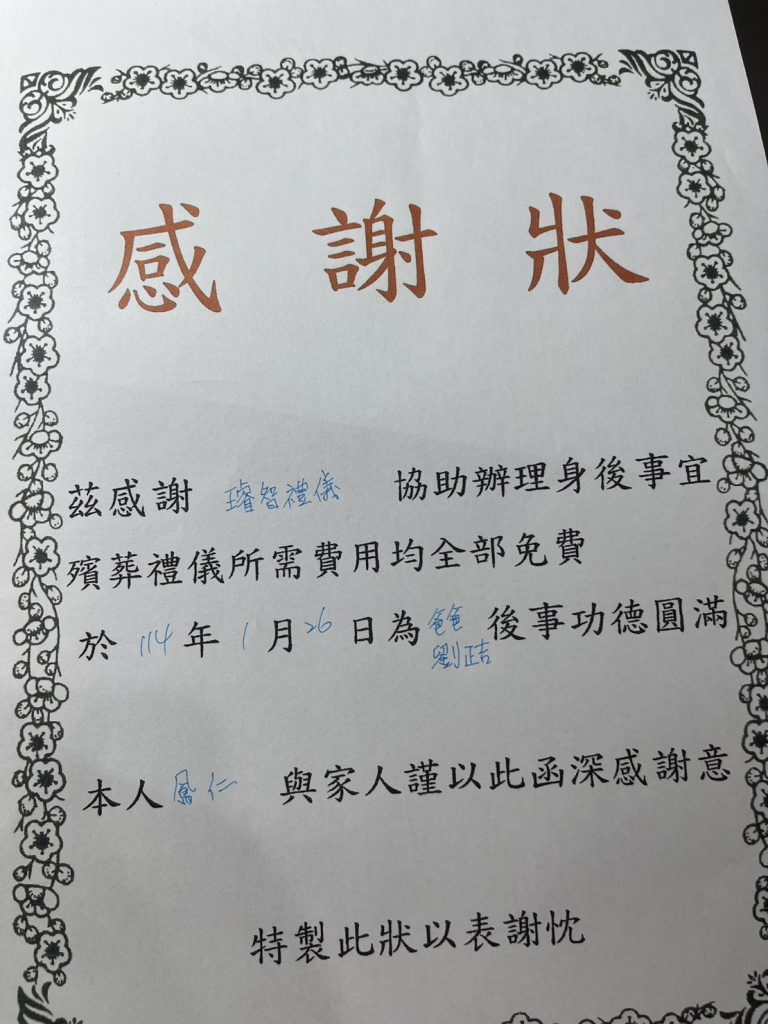 感謝狀
茲感謝 璿智禮儀 協助辦理身後事宜
殯葬禮儀所需費用均全部免費
於 114 年 1 月 26 日為 爸爸 後事功德圓滿
劉正吉
本人 鳳仁 與家人謹以此函深感謝意
特製此狀以表謝忱